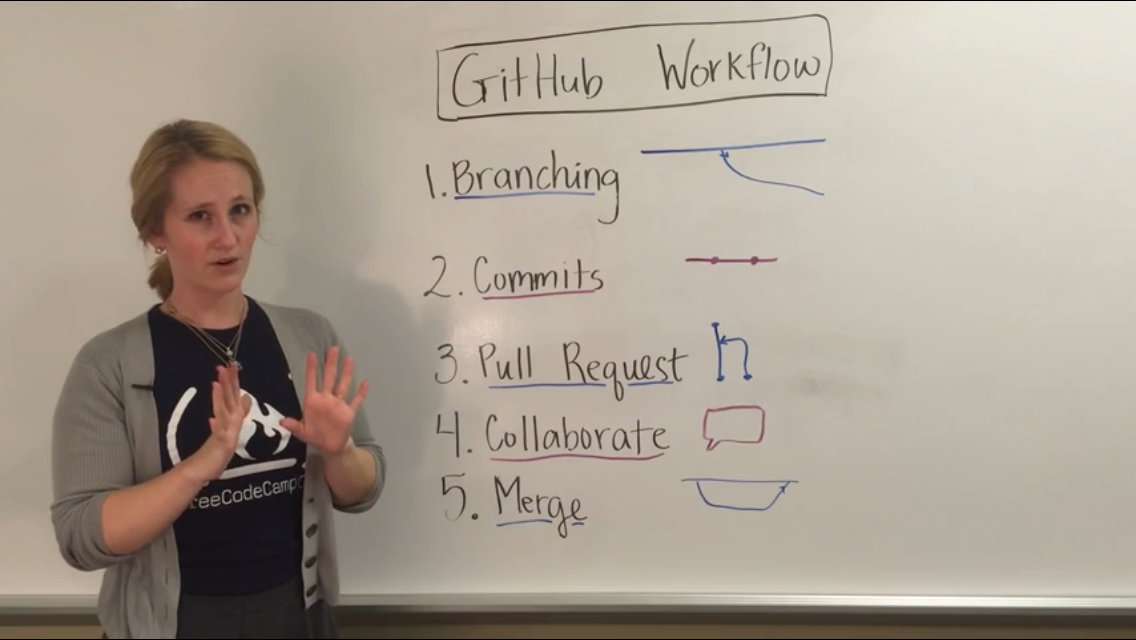 GitHub Workflow
1. Branching
2. Commits
3. Pull Request
4. Collaborate
5. Merge
reeCodeCamp